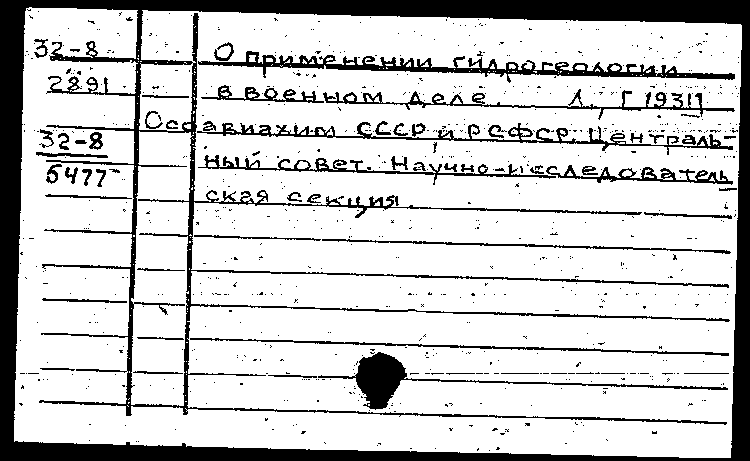 32-8
2891
32-8
5477
О применении гидрогеологии
в военном деле. Л., [1931]
Осоавиахим СССР и РСФСР. Централь-
ный совет. Научно-исследователь
ская секция.